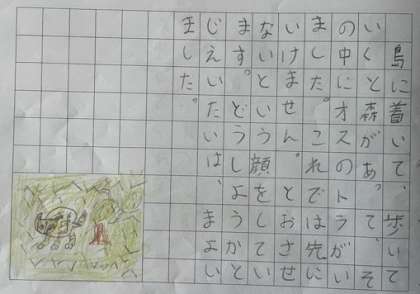 島に着いて、歩いて
いくと森があって、そ
の中にオスのトラがい
ました。これでは先に
いけません。とおさせ
ないという顔をしてい
ます。どうしようかと
じえいたいは、まよい
ました。